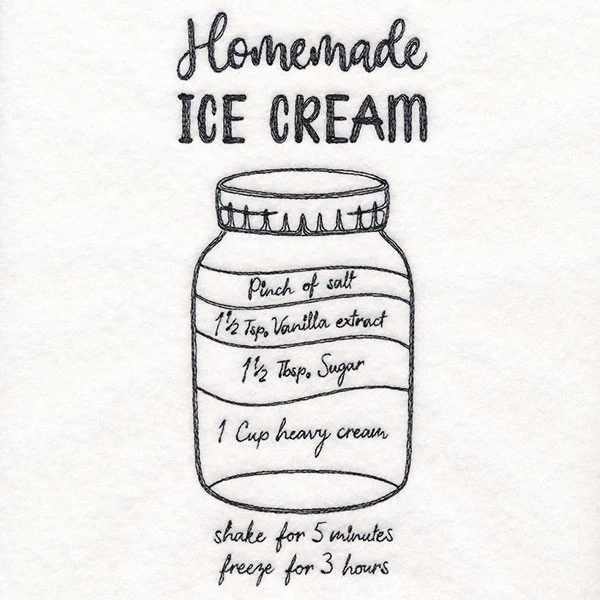 Homemade
ICE CREAM
Pinch of salt
1 1/2 Tsp. Vanilla extract
1 1/2 Tbsp. Sugar
1 Cup heavy cream
shake for 5 minutes
freeze for 3 hours